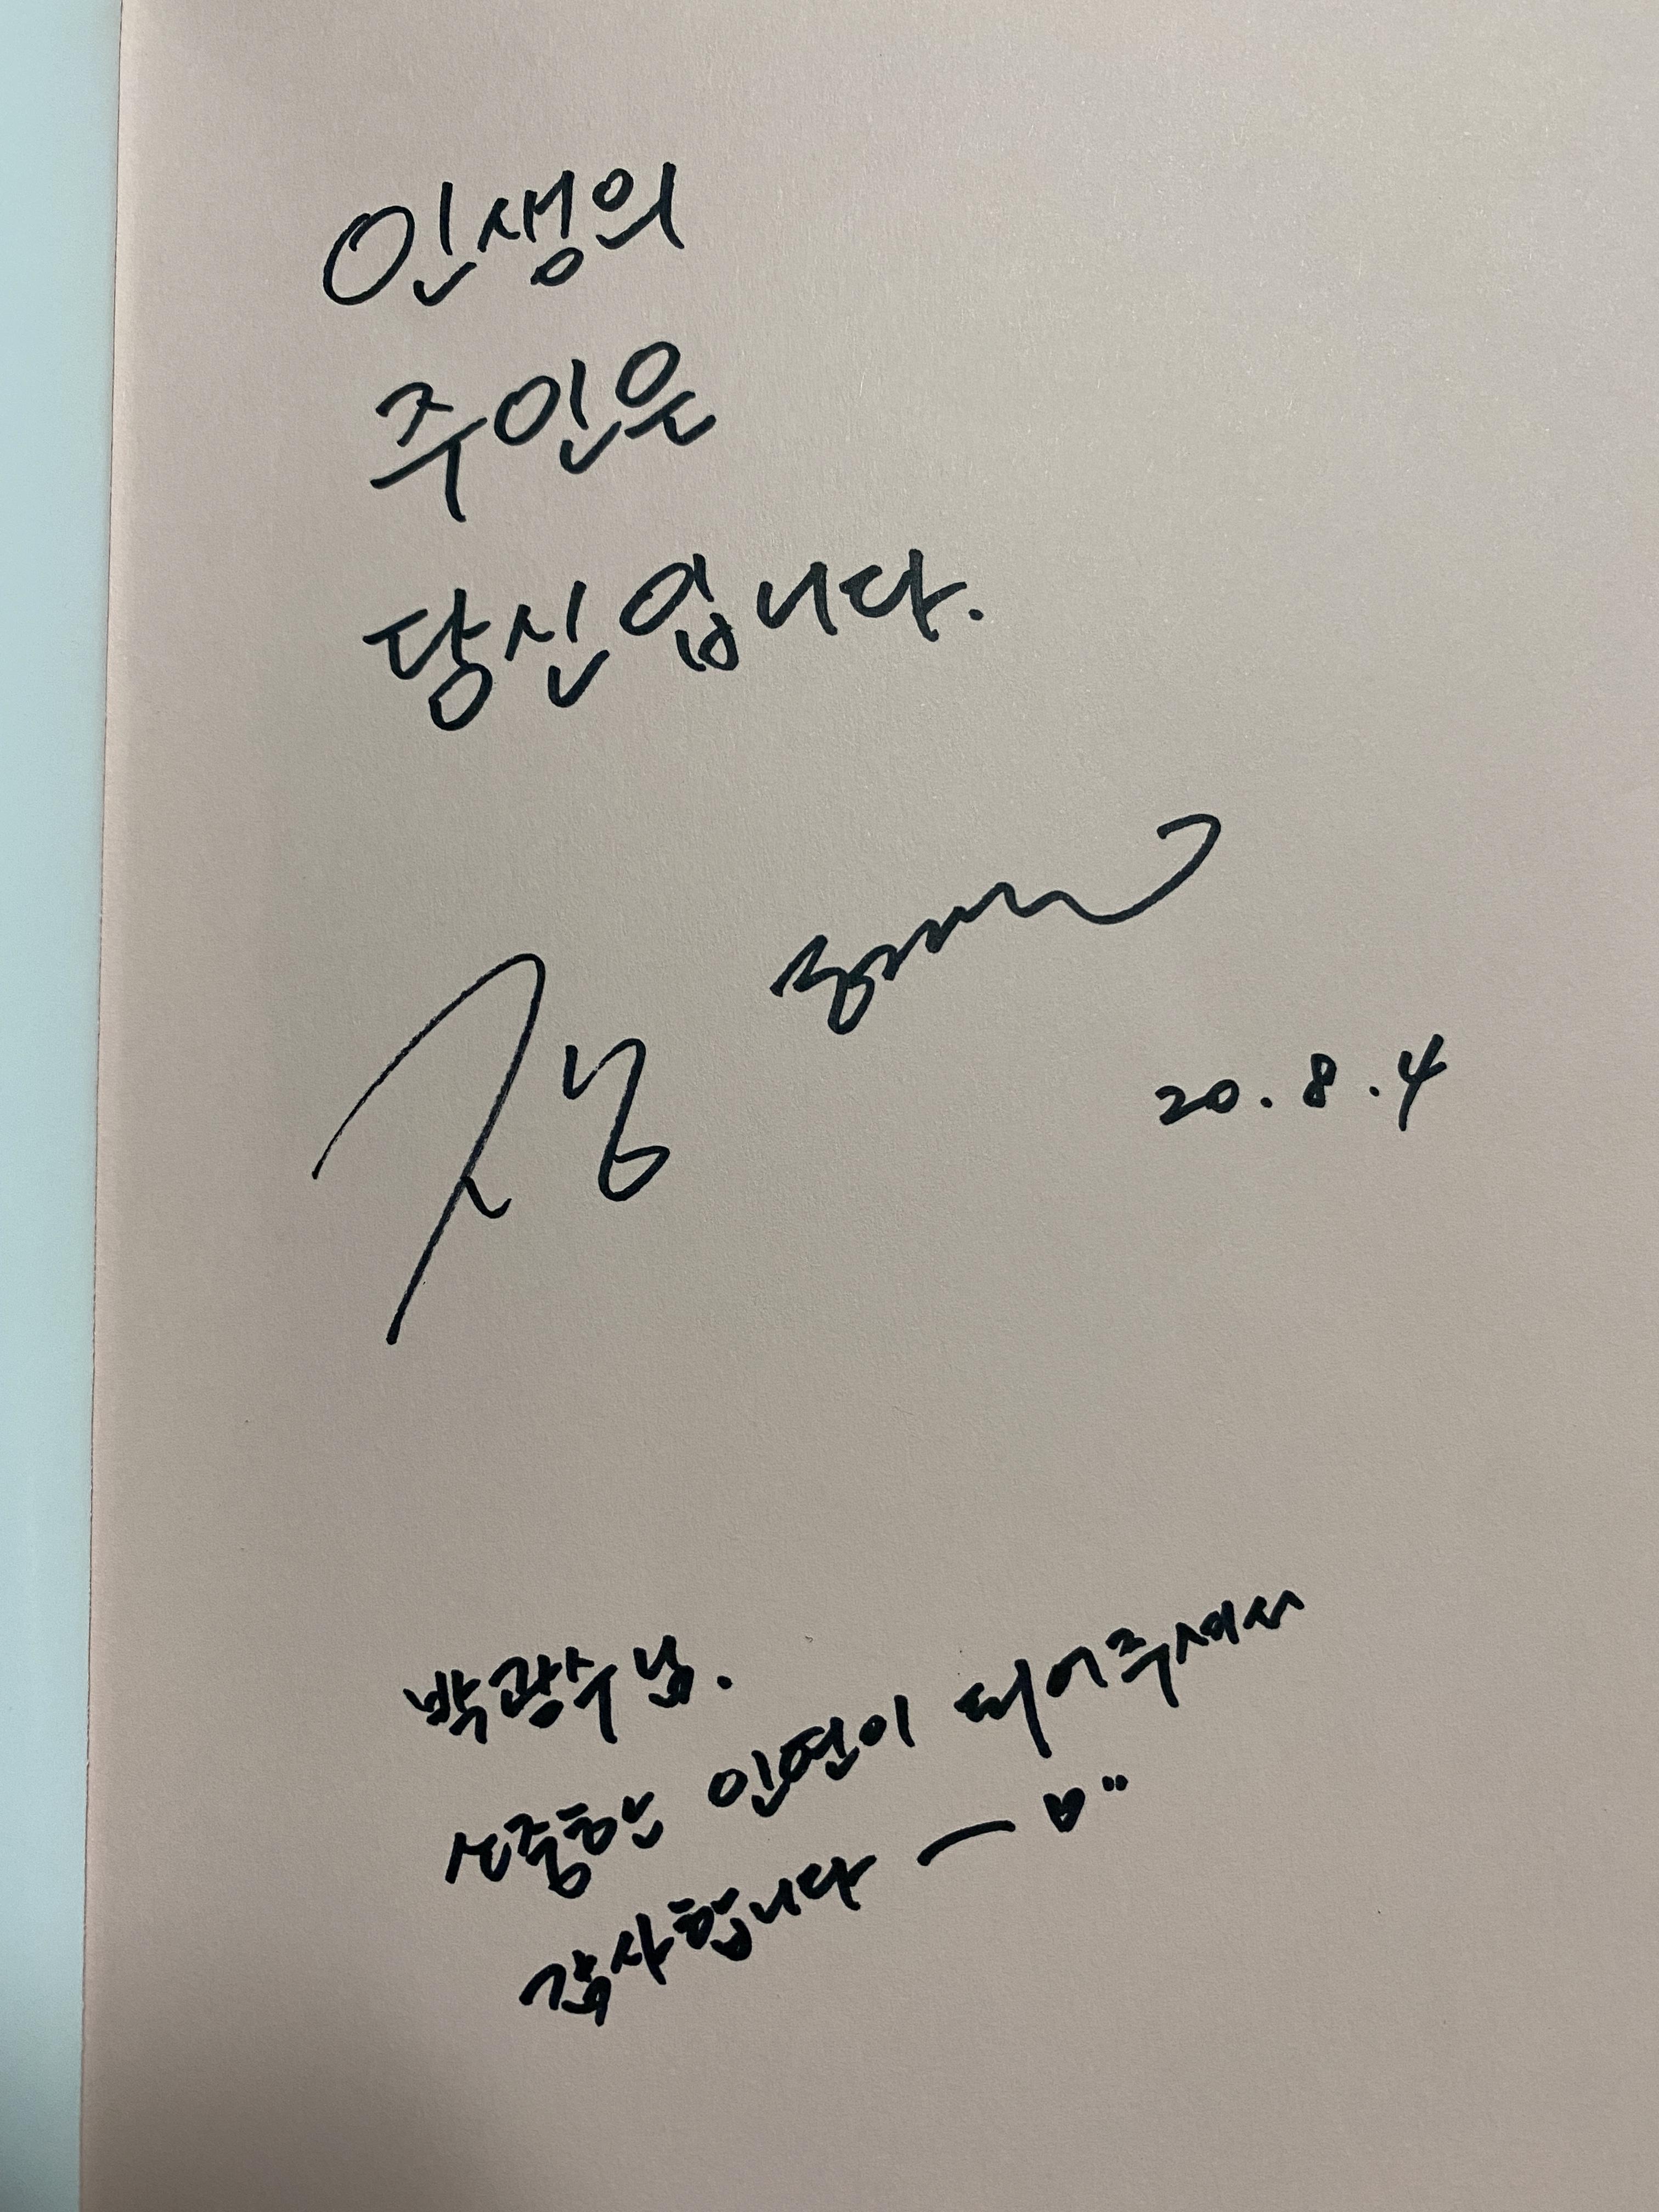 인생의
주인은
당신입니다.
20.8.4
박광수님.
소중한 인연이 되어주셔서
감사합니다 ― ♥"